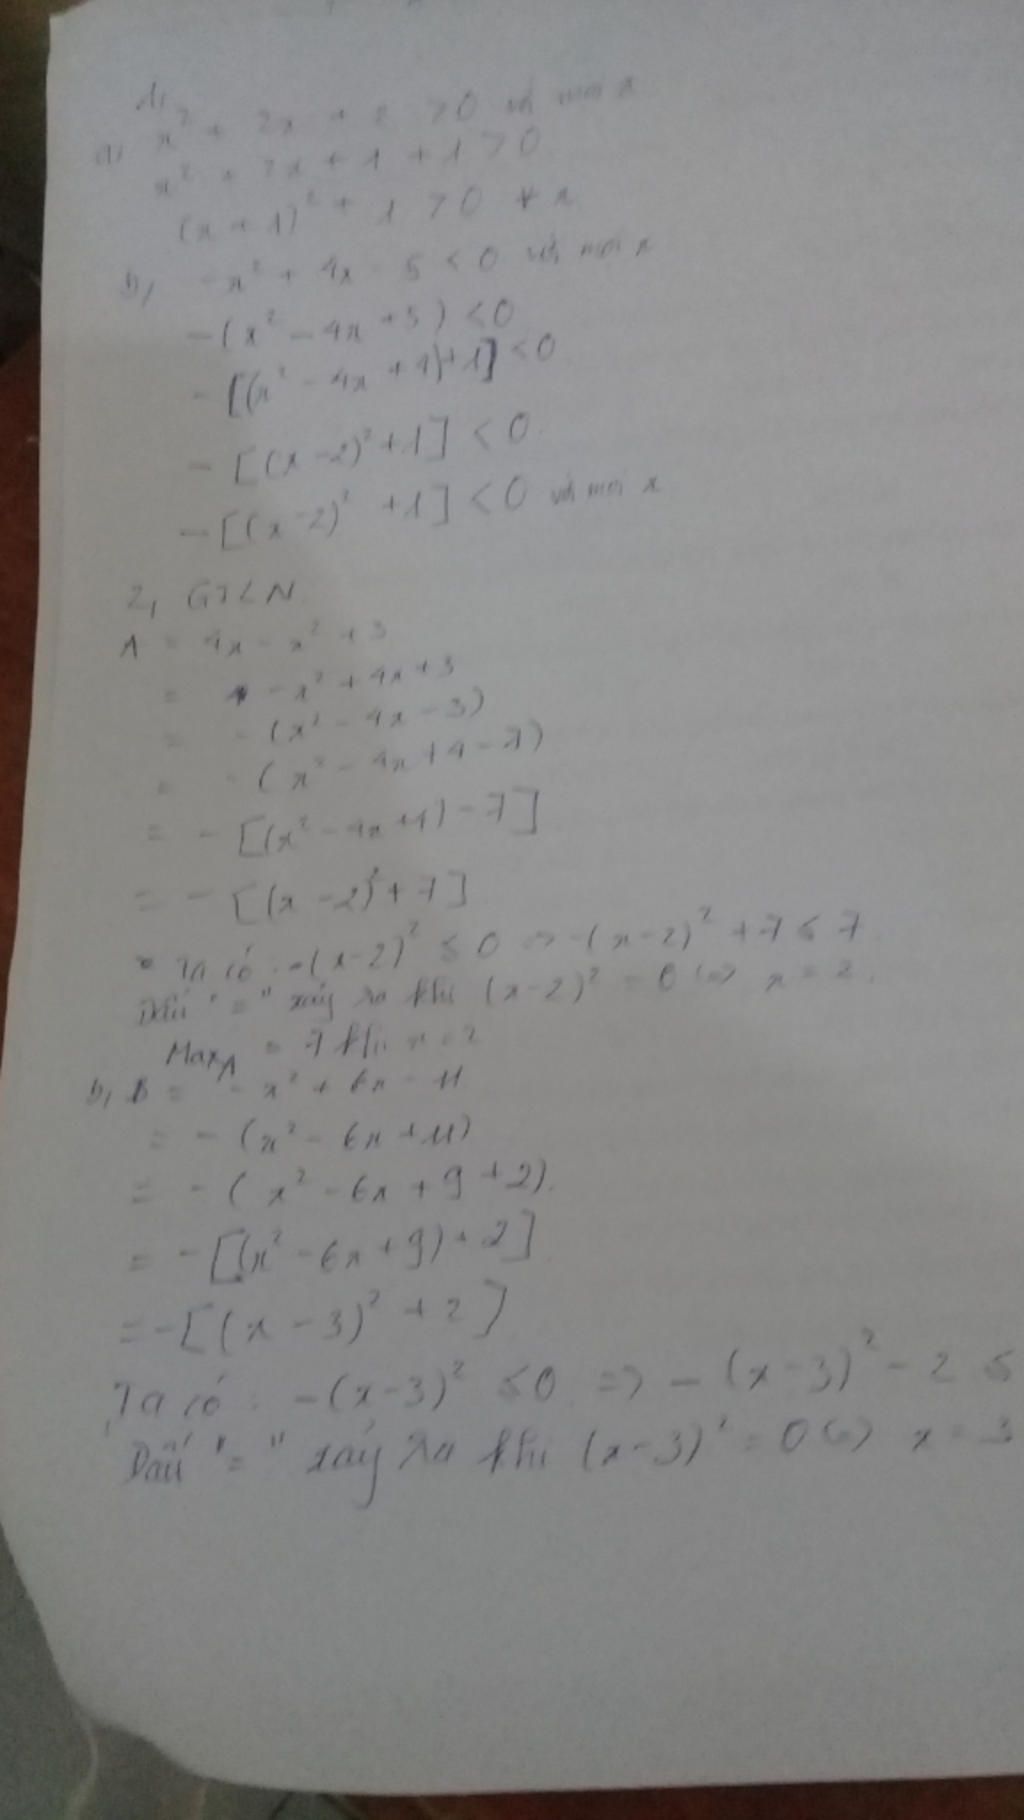 1,
a, x² + 2x + 2 > 0 với mọi x
x² + 2x + 1 + 1 > 0
(x + 1)² + 1 > 0 ∀ x
b, -x² + 4x - 5 < 0 với mọi x
-(x² - 4x + 5) < 0
- [(x² - 4x + 4) + 1] < 0
- [(x - 2)² + 1] < 0.
- [(x - 2)² + 1] < 0 với mọi x
2, GTLN
A = 4x - x² + 3
= - x² + 4x + 3
= - (x² - 4x - 3)
= - (x² - 4x + 4 - 7)
= - [(x² - 4x + 4) - 7]
= - [(x - 2)² + 7]
Ta có: -(x-2)² ≤ 0 => -(x-2)² + 7 ≤ 7
Dấu "=" xảy ra khi (x-2)² = 0 <=> x = 2.
Max A = 7 khi x = 2
b, B = - x² + 6x - 11
= - (x² - 6x + 11)
= - (x² - 6x + 9 + 2).
= - [(x² - 6x + 9) + 2]
= - [(x - 3)² + 2]
Ta có: -(x-3)² ≤ 0 => - (x-3)² - 2 ≤
Dấu "=" xảy ra khi (x-3)² = 0 <=> x = 3